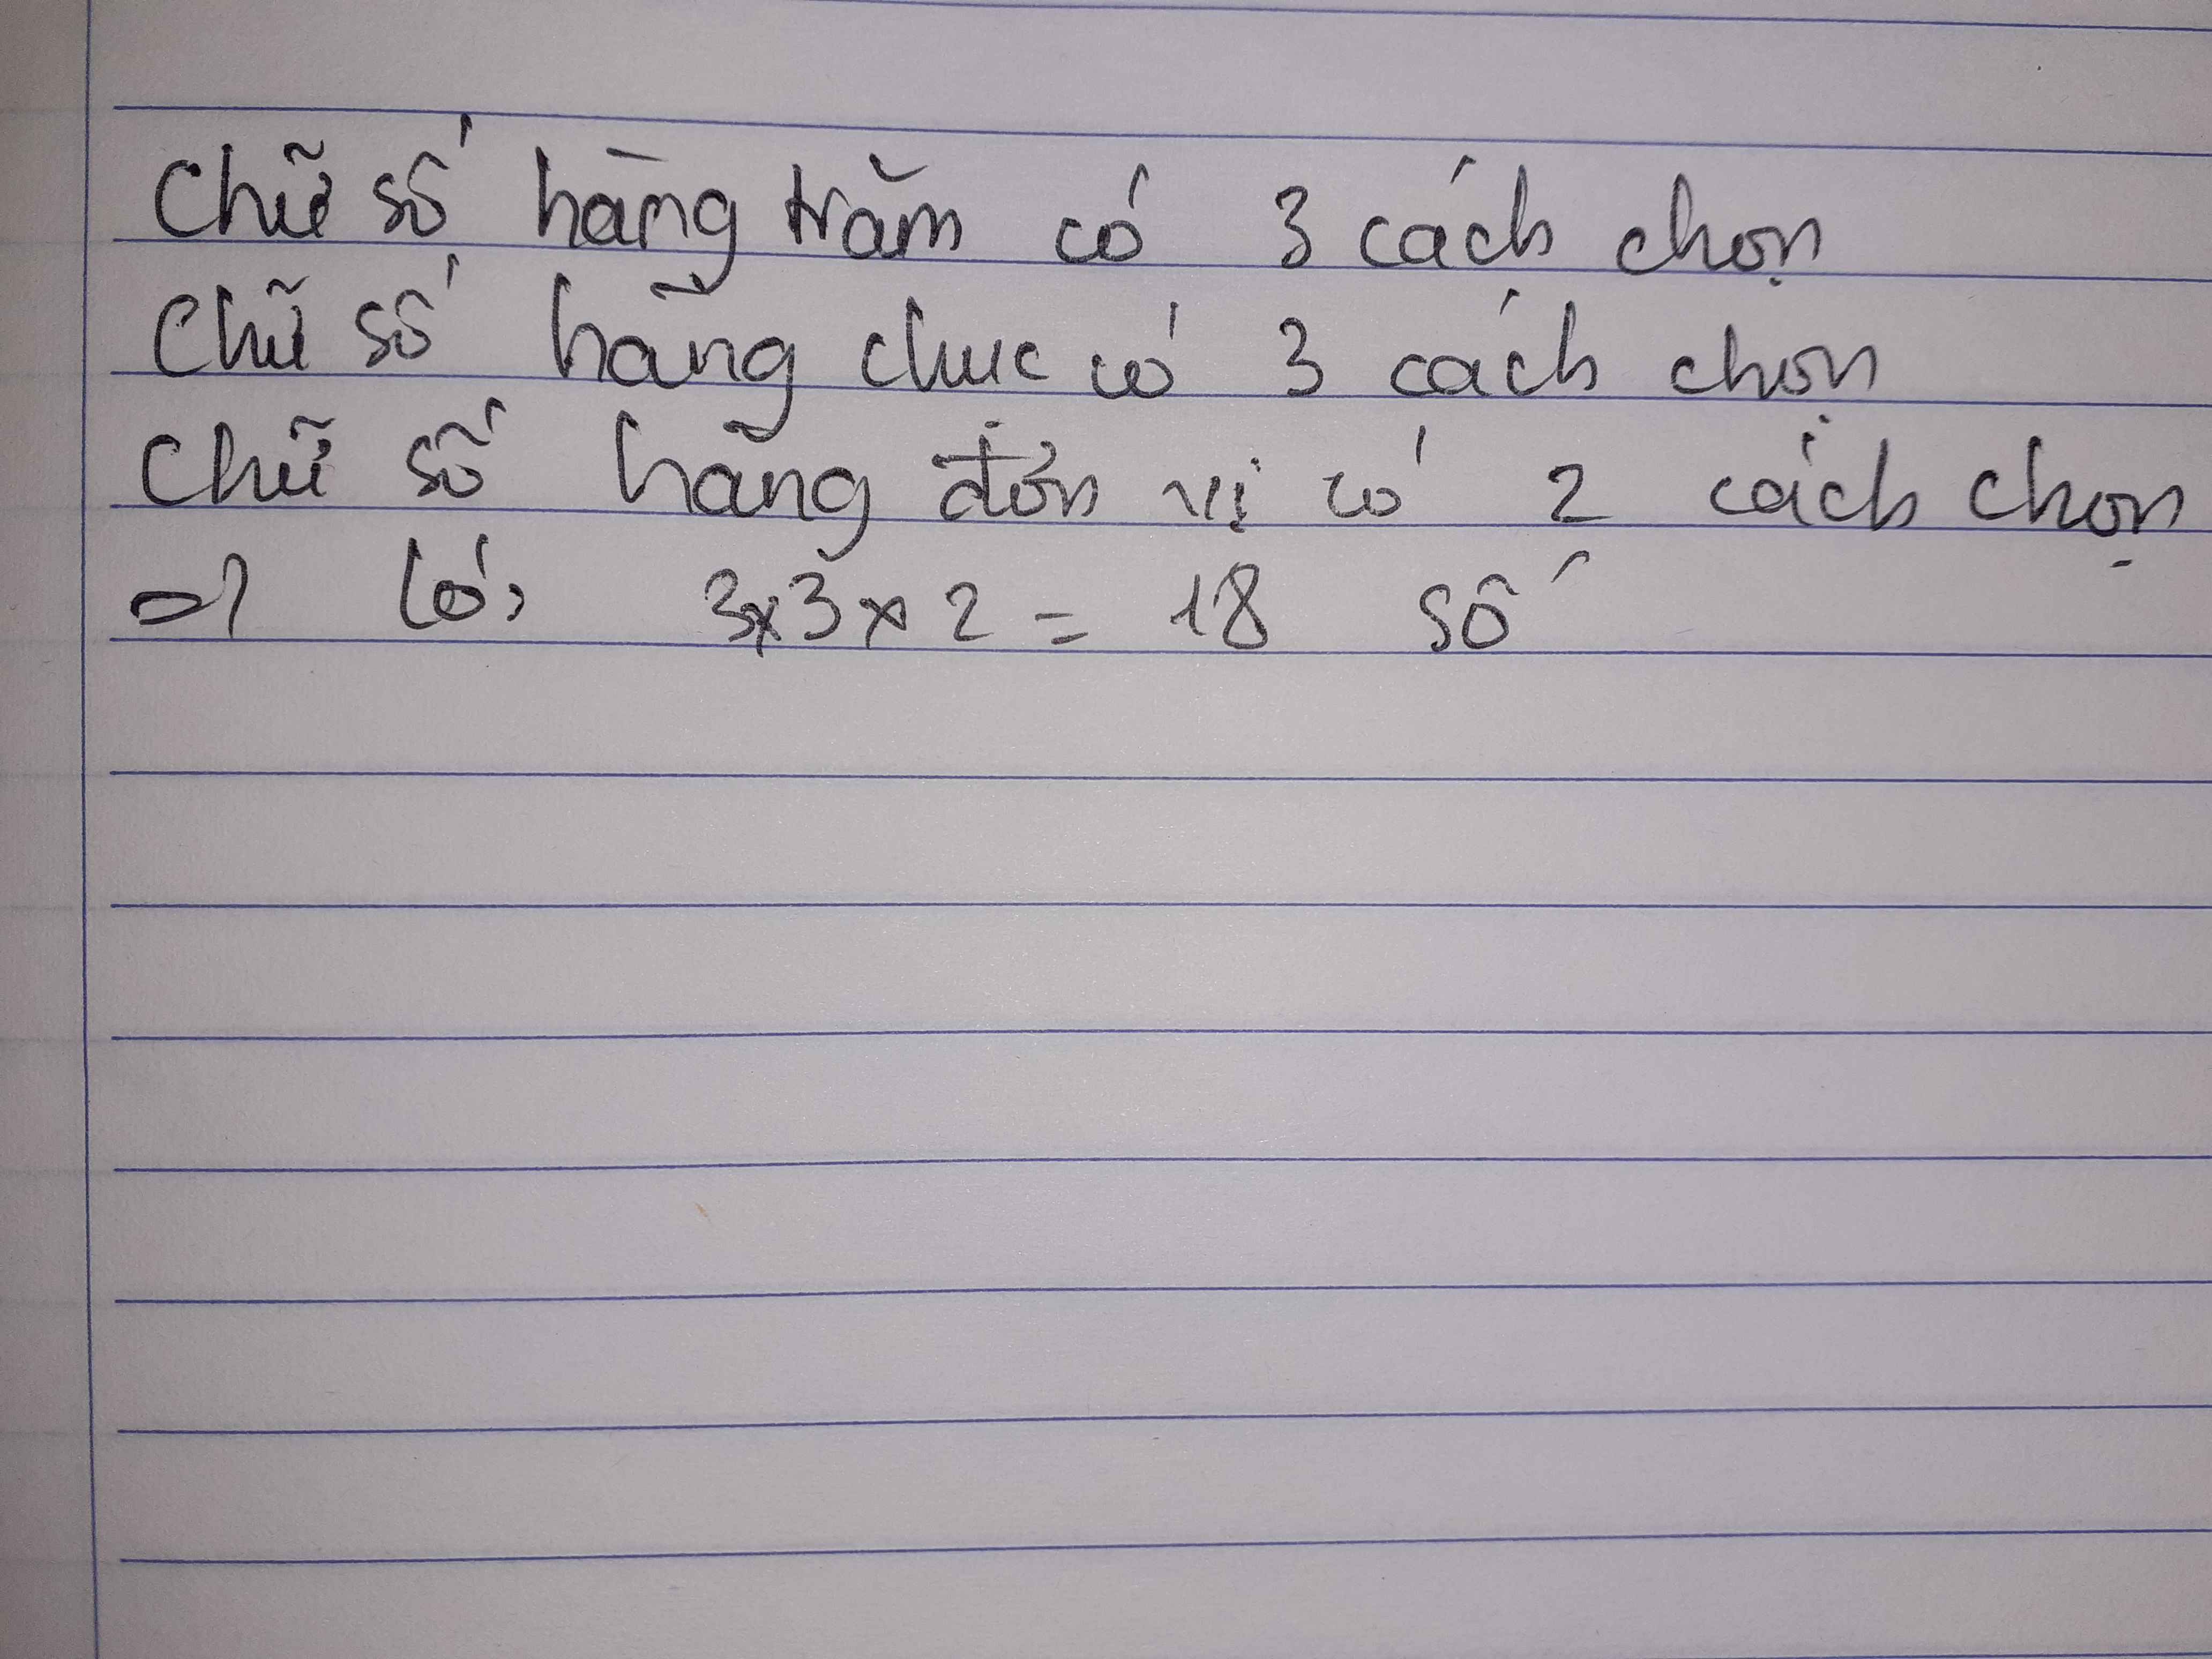 Chữ số hàng trăm có 3 cách chọn
Chữ số hàng chục có 3 cách chọn
Chữ số hàng đơn vị có 2 cách chọn
=> Có: 3x3x2 = 18 số